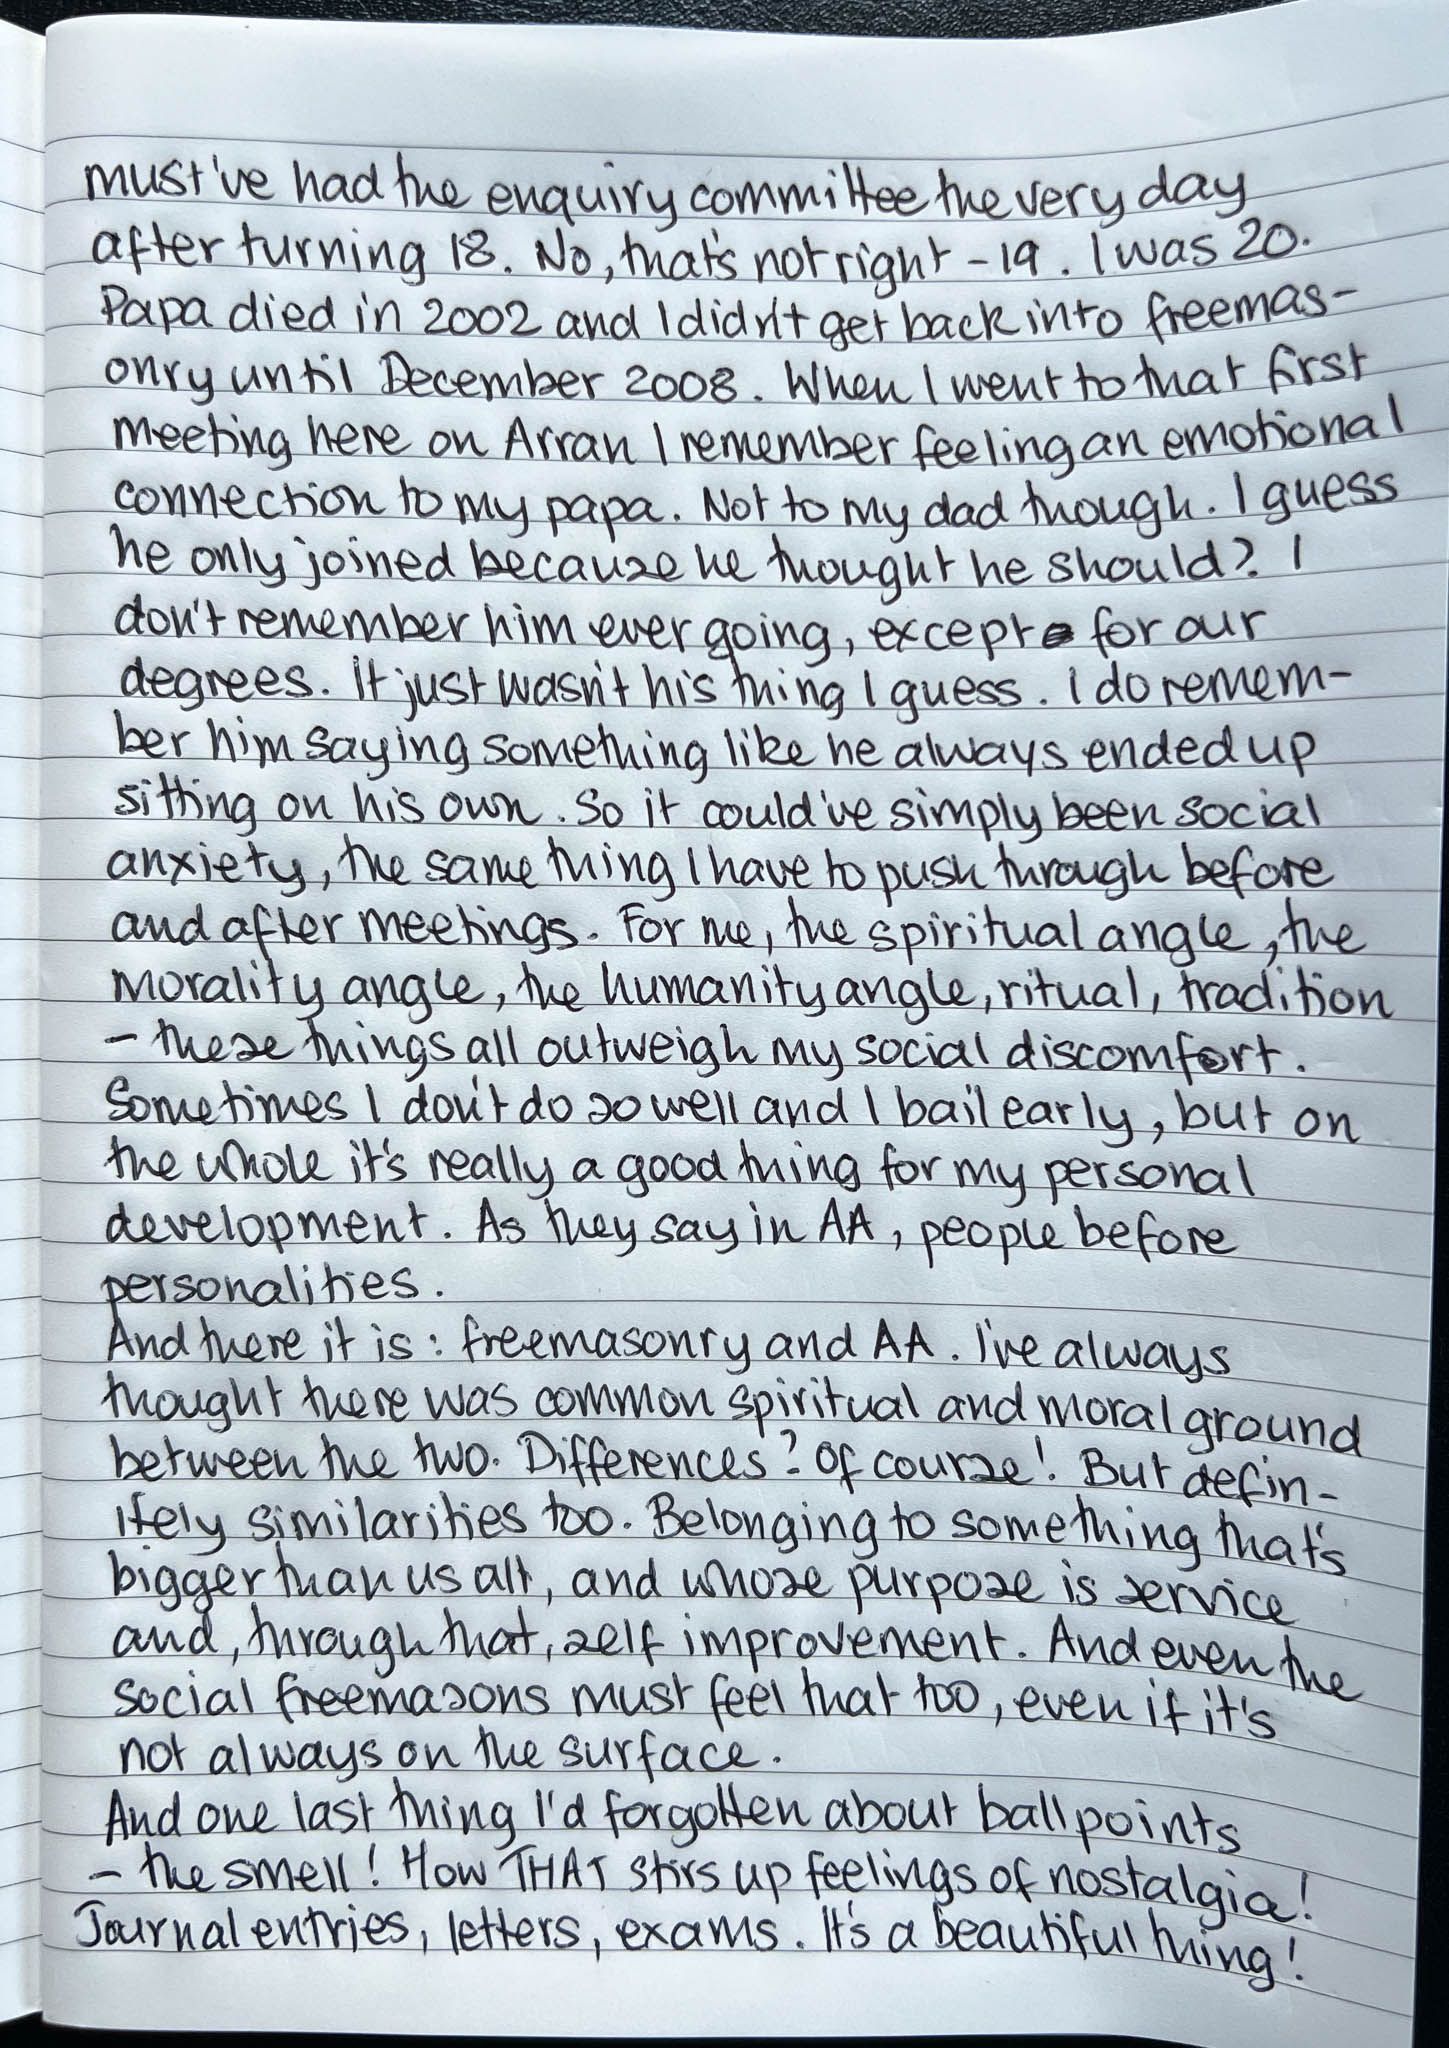 must've had the enquiry committee the very day
after turning 18. No, that's not right - 19. I was 20.
Papa died in 2002 and I didn't get back into freemas-
onry until December 2008. When I went to that first
meeting here on Arran I remember feeling an emotional
connection to my papa. Not to my dad though. I guess
he only joined because he thought he should? I
don't remember him ever going, except for our
degrees. It just wasn't his thing I guess. I do remem-
ber him saying something like he always ended up
sitting on his own. So it could've simply been social
anxiety, the same thing I have to push through before
and after meetings. For me, the spiritual angle, the
morality angle, the humanity angle, ritual, tradition
- these things all outweigh my social discomfort.
Sometimes I don't do so well and I bail early, but on
the whole it's really a good thing for my personal
development. As they say in AA, people before
personalities.
And there it is: freemasonry and AA. I've always
thought there was common spiritual and moral ground
between the two. Differences? Of course! But defin-
itely similarities too. Belonging to something that's
bigger than us all, and whose purpose is service
and, through that, self improvement. And even the
social freemasons must feel that too, even if it's
not always on the surface.
And one last thing I'd forgotten about ballpoints
- the smell! How THAT stirs up feelings of nostalgia!
Journal entries, letters, exams. It's a beautiful thing!